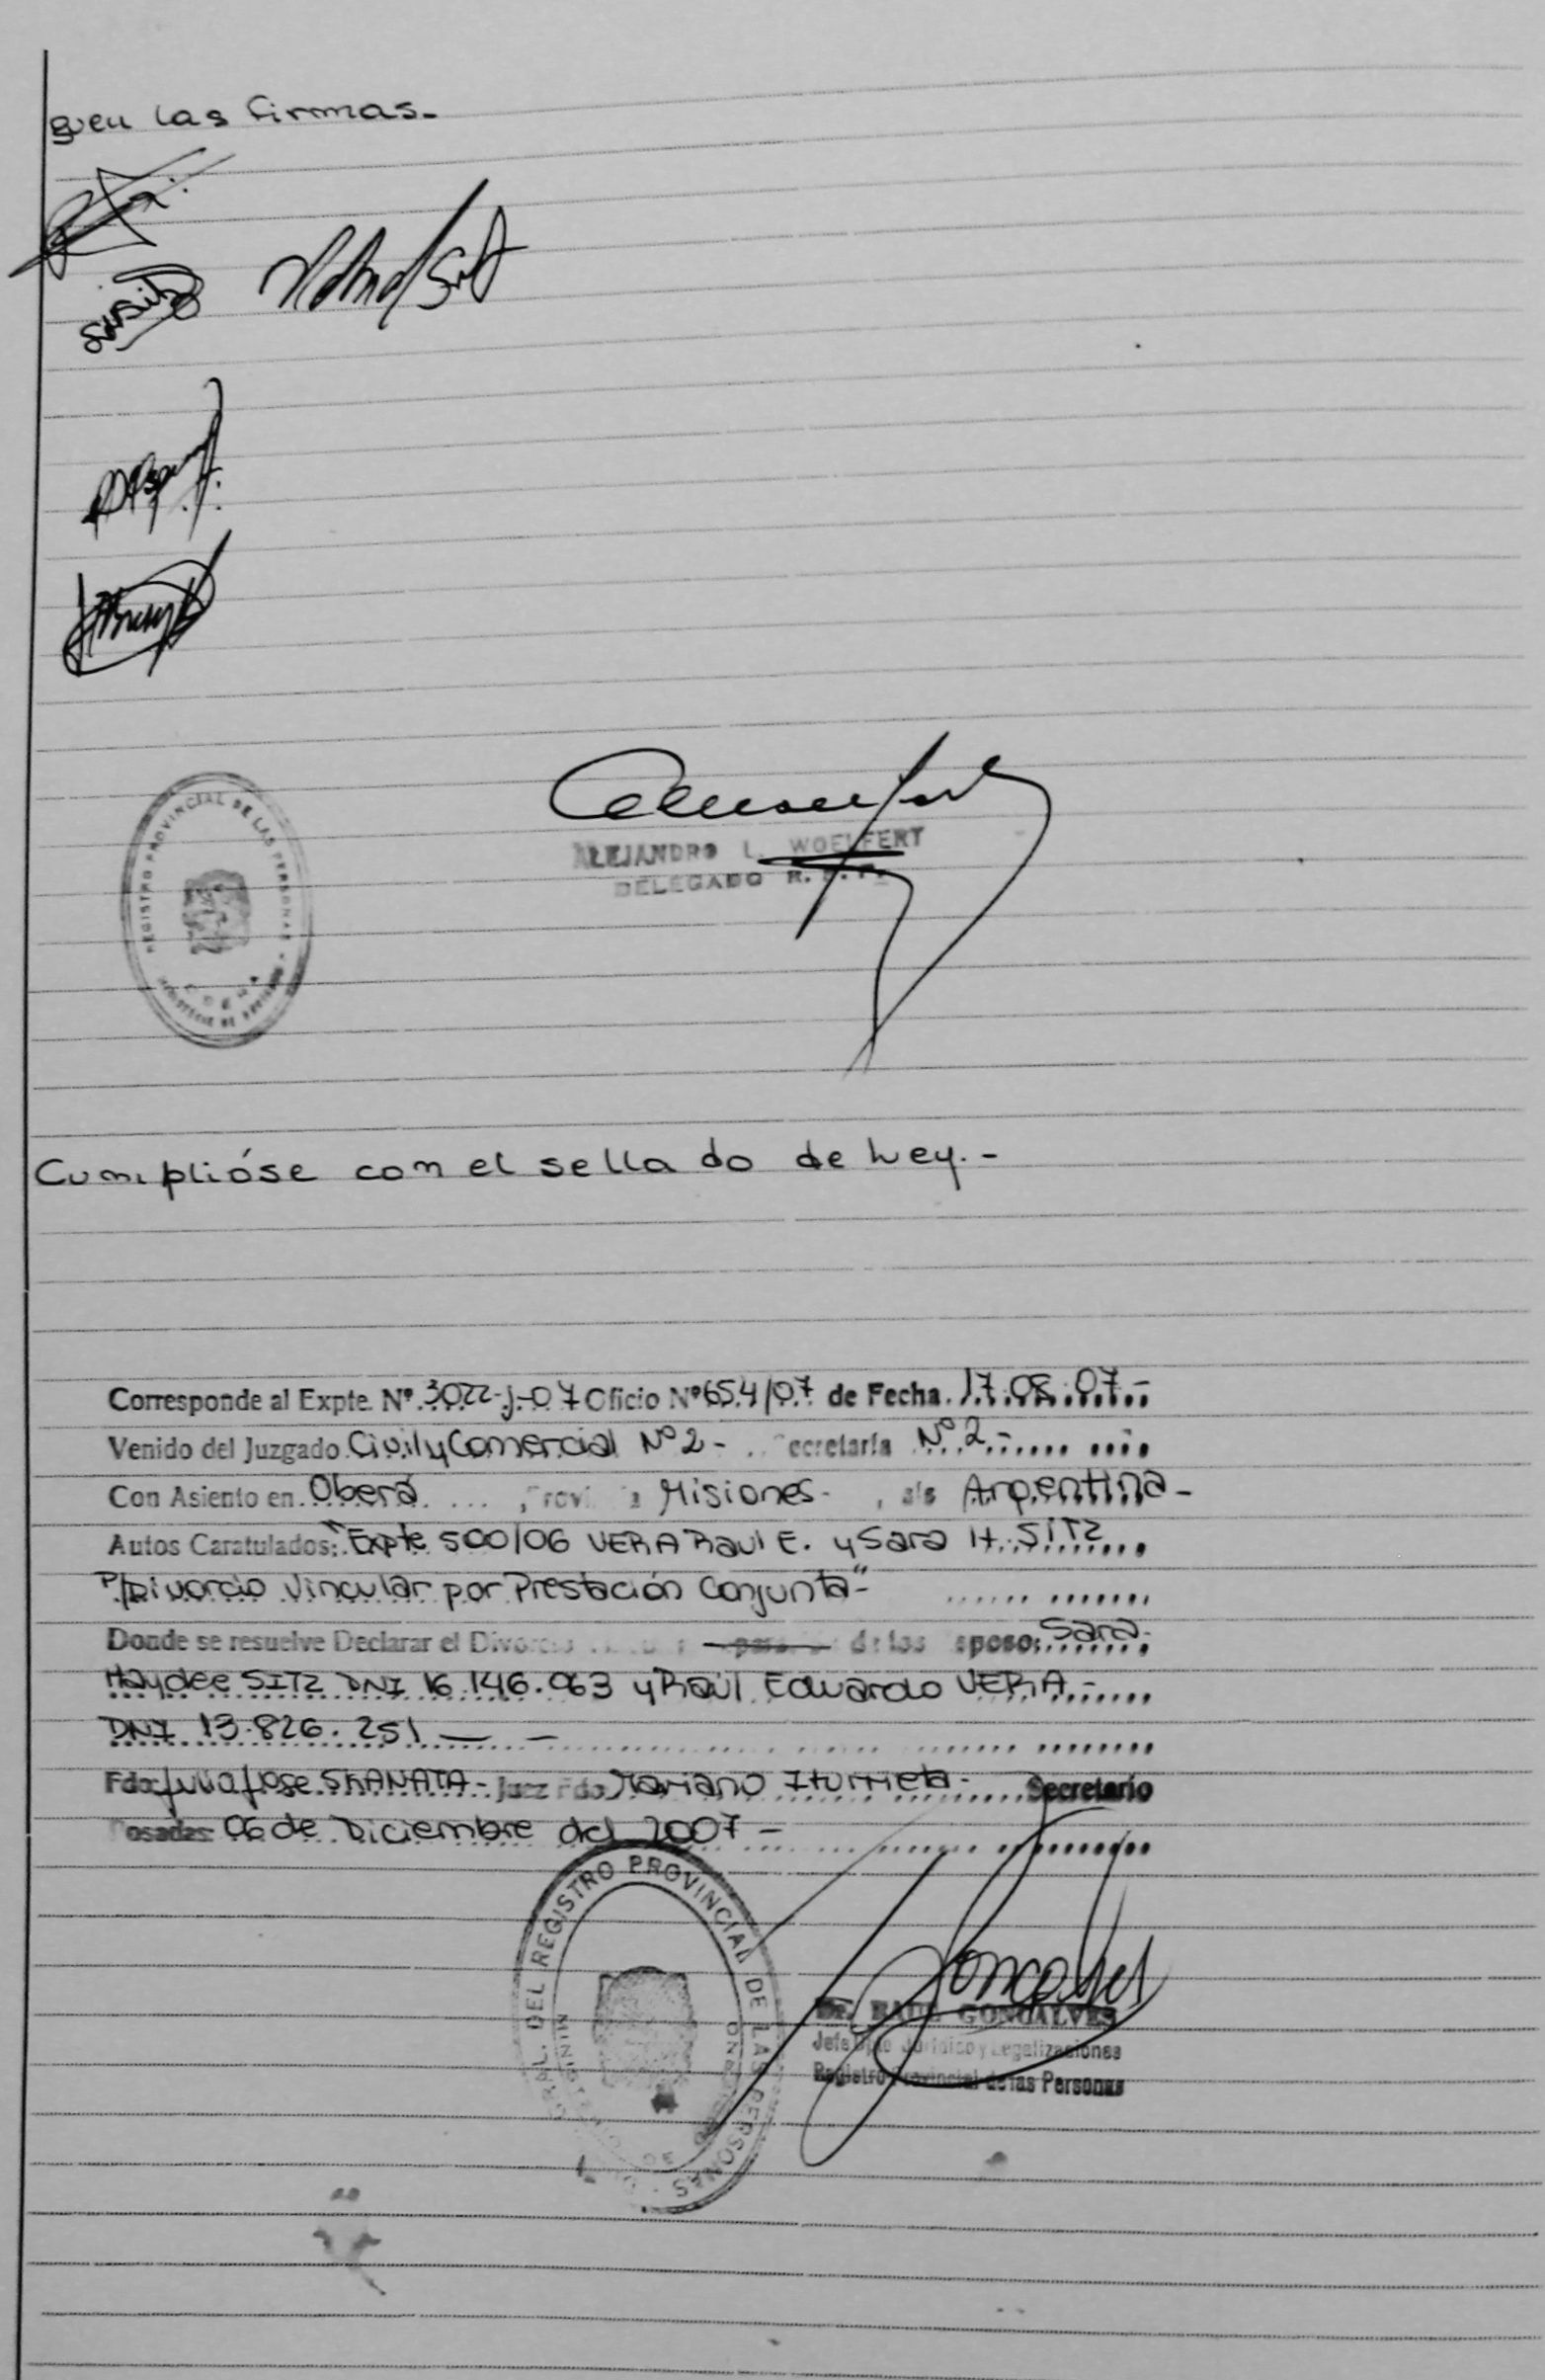 guen las firmas.-
ALEJANDRO L. WOELFERT
DELEGADO R.
REGISTRO PROVINCIAL DE LAS PERSONAS
Cumplióse con el sellado de Ley.-
Corresponde al Expte. Nº 3022-J-07 Oficio Nº 654/07 de Fecha 17.08.07.-
Venido del Juzgado Civil y Comercial Nº 2- Secretaría Nº 2.-
Con Asiento en Oberá Misiones- Argentina-
Autos Caratulados: "Expte 500/06 VERA Raul E. y Sara H. SITZ
P/Divorcio Vincular por Prestación Conjunta"-
Donde se resuelve Declarar el Divorcio de los esposos Sara-
Haydee SITZ DNI 16.146.063 y Raúl Eduardo VERA.-
DNI 13.826.251 — –
Fdo: Julio Jose SKANATA- Juez Fdo Mariano Iturrieta- Secretario
Posadas 06 de Diciembre del 2007-
DEL REGISTRO PROVINCIAL DE LAS PERSONAS
Dr. RAUL GONCALVES
Jefe Dpto Jurídico y Legalizaciones
Registro Provincial de las Personas